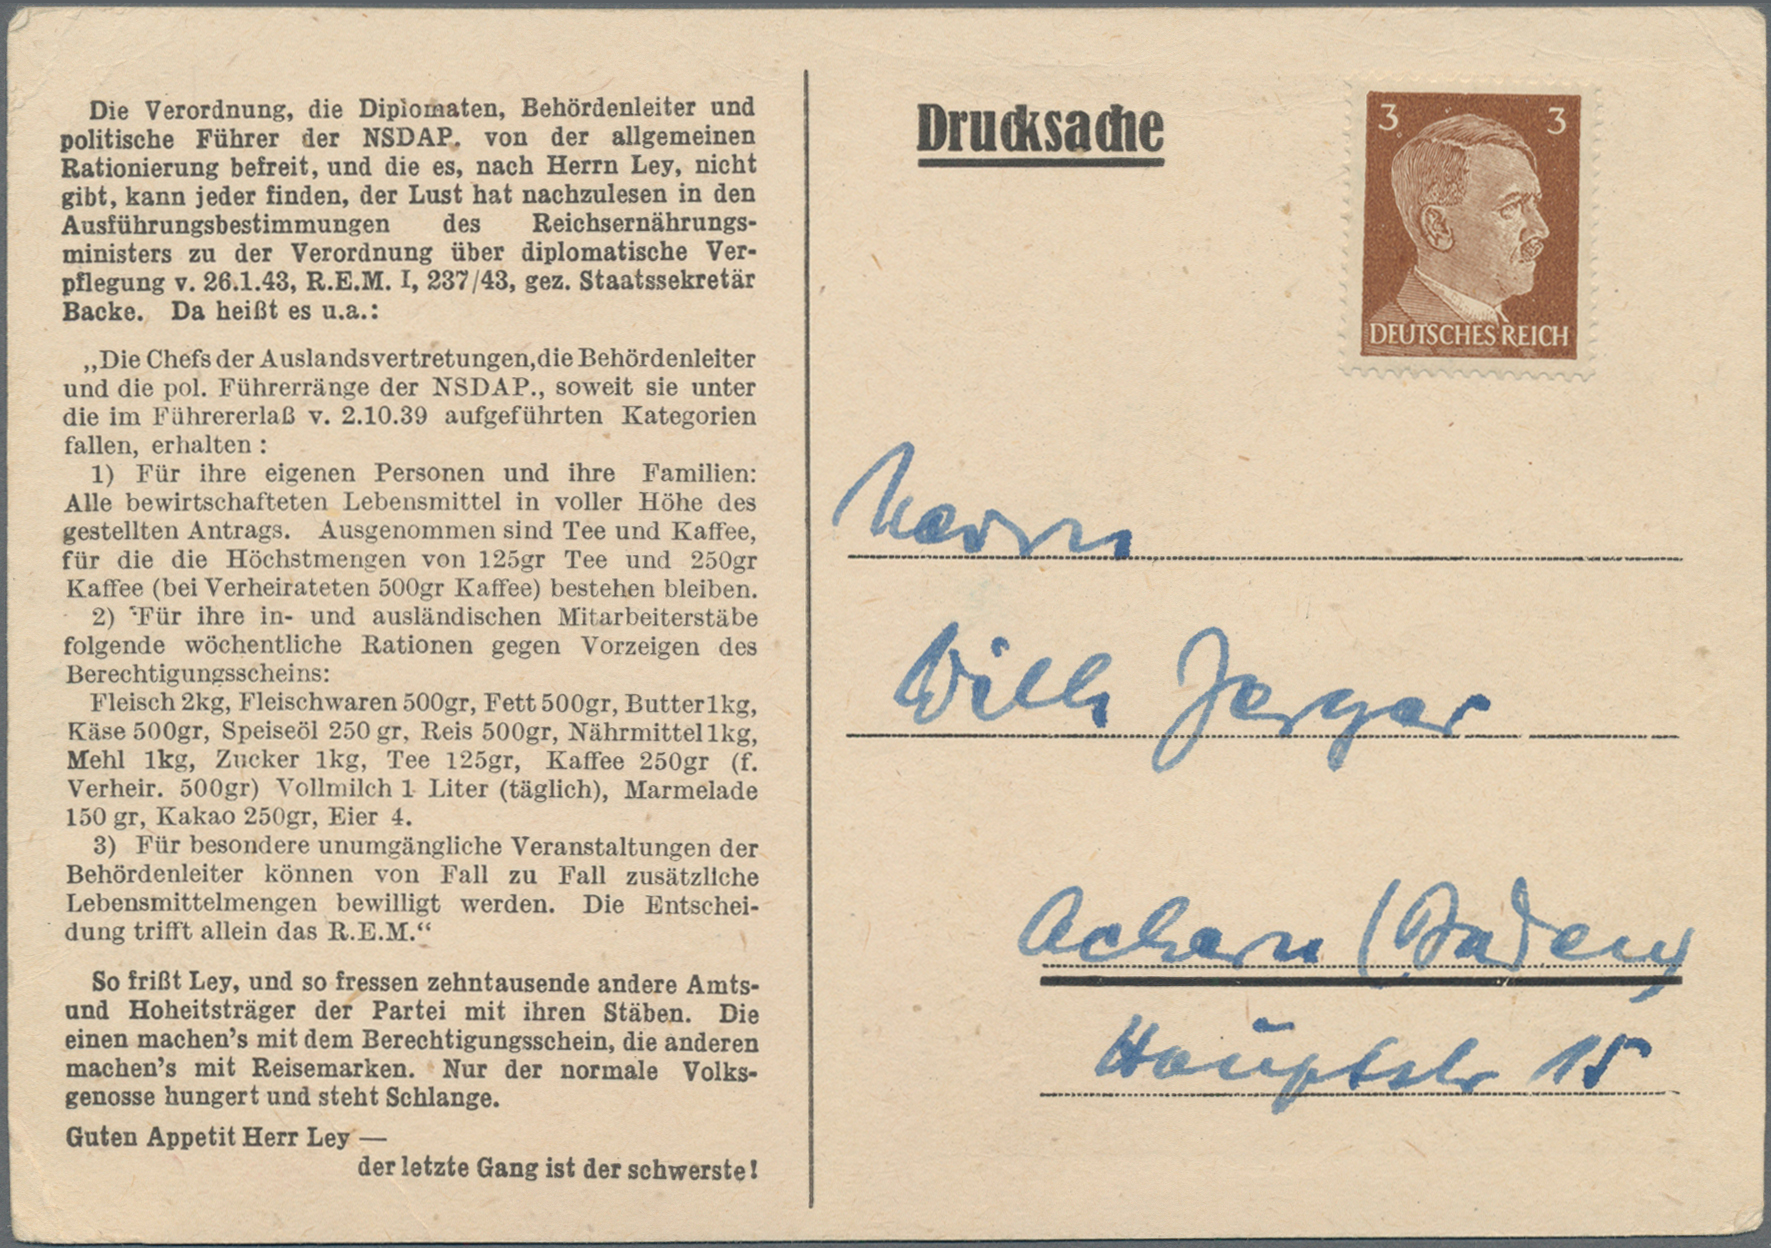 Die Verordnung, die Diplomaten, Behördenleiter und
politische Führer der NSDAP. von der allgemeinen
Rationierung befreit, und die es, nach Herrn Ley, nicht
gibt, kann jeder finden, der Lust hat nachzulesen in den
Ausführungsbestimmungen des Reichsernährungs-
ministers zu der Verordnung über diplomatische Ver-
pflegung v. 26.1.43, R.E.M. I, 237/43, gez. Staatssekretär
Backe. Da heißt es u.a.:
„Die Chefs der Auslandsvertretungen, die Behördenleiter
und die pol. Führerränge der NSDAP., soweit sie unter
die im Führererlaß v. 2.10.39 aufgeführten Kategorien
fallen, erhalten:
1) Für ihre eigenen Personen und ihre Familien:
Alle bewirtschafteten Lebensmittel in voller Höhe des
gestellten Antrags. Ausgenommen sind Tee und Kaffee,
für die die Höchstmengen von 125gr Tee und 250gr
Kaffee (bei Verheirateten 500gr Kaffee) bestehen bleiben.
2) Für ihre in- und ausländischen Mitarbeiterstäbe
folgende wöchentliche Rationen gegen Vorzeigen des
Berechtigungsscheins:
Fleisch 2kg, Fleischwaren 500gr, Fett 500gr, Butter 1kg,
Käse 500gr, Speiseöl 250 gr, Reis 500gr, Nährmittel 1kg,
Mehl 1kg, Zucker 1kg, Tee 125gr, Kaffee 250gr (f.
Verheir. 500gr) Vollmilch 1 Liter (täglich), Marmelade
150 gr, Kakao 250gr, Eier 4.
3) Für besondere unumgängliche Veranstaltungen der
Behördenleiter können von Fall zu Fall zusätzliche
Lebensmittelmengen bewilligt werden. Die Entschei-
dung trifft allein das R.E.M.“
So frißt Ley, und so fressen zehntausende andere Amts-
und Hoheitsträger der Partei mit ihren Stäben. Die
einen machen's mit dem Berechtigungsschein, die anderen
machen's mit Reisemarken. Nur der normale Volks-
genosse hungert und steht Schlange.
Guten Appetit Herr Ley —
der letzte Gang ist der schwerste!
Drucksache
3 3
DEUTSCHES REICH
Herrn
Willi Jerger
Achern (Baden)
Hauptstr 15